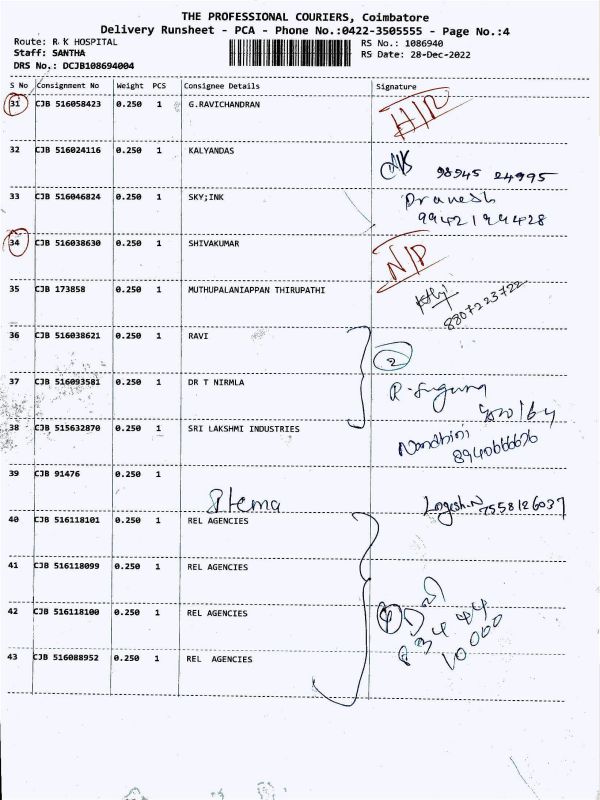 THE PROFESSIONAL COURIERS, Coimbatore
Delivery Runsheet - PCA - Phone No.:0422-3505555 - Page No.:4
Route: R K HOSPITAL
RS No.: 1086940
Staff: SANTHA
RS Date: 28-Dec-2022
DRS No.: DCJB108694004
S No Consignment No Weight PCS Consignee Details Signature
31 CJB 516058423 0.250 1 G.RAVICHANDRAN
32 CJB 516024116 0.250 1 KALYANDAS
98945 24995
33 CJB 516046824 0.250 1 SKY;INK Pranesh
9942199428
34 CJB 516038630 0.250 1 SHIVAKUMAR N/P
35 CJB 173858 0.250 1 MUTHUPALANIAPPAN THIRUPATHI
8807223722
36 CJB 516038621 0.250 1 RAVI
2
37 CJB 516093581 0.250 1 DR T NIRMLA R. Suguna
38 CJB 515632870 0.250 1 SRI LAKSHMI INDUSTRIES Nandhini
39 CJB 91476 0.250 1
Logesh.N 7558126037
40 CJB 516118101 0.250 1 REL AGENCIES
41 CJB 516118099 0.250 1 REL AGENCIES
42 CJB 516118100 0.250 1 REL AGENCIES
10000
43 CJB 516088952 0.250 1 REL AGENCIES